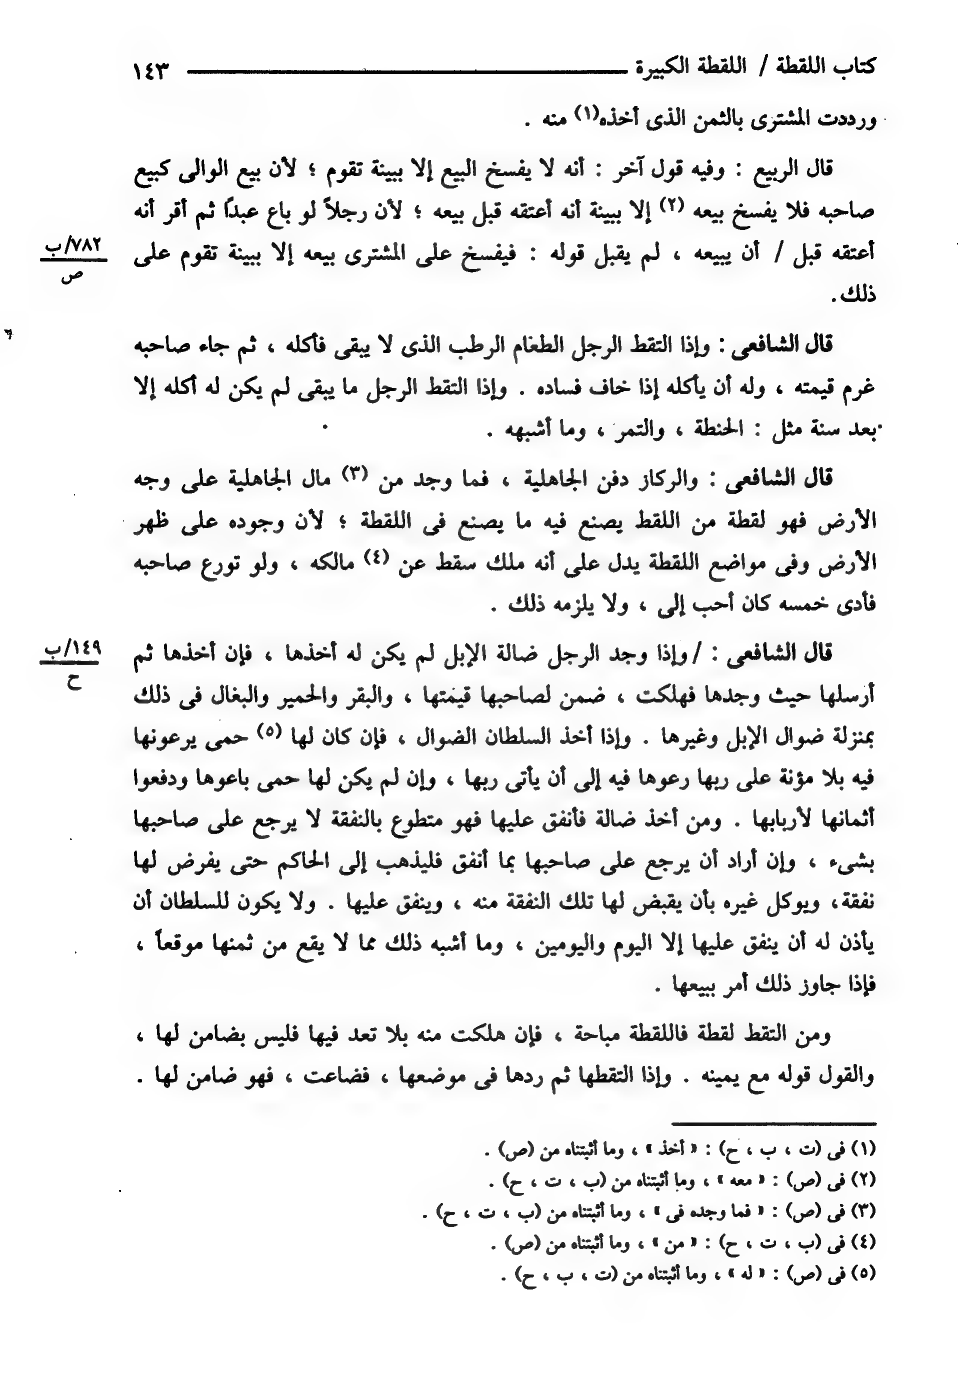 كتاب اللقطة / اللقطة الكبيرة ١٤٣
ورددت المشترى بالثمن الذى أخذه(١) منه .
قال الربيع : وفيه قول آخر : أنه لا يفسخ البيع إلا ببينة تقوم ؛ لأن بيع الوالى كبيع
صاحبه فلا يفسخ بيعه (٢) إلا ببينة أنه أعتقه قبل بيعه ؛ لأن رجلاً لو باع عبدًا ثم أقر أنه
أعتقه قبل / أن يبيعه ، لم يقبل قوله : فيفسخ على المشترى بيعه إلا ببينة تقوم على
٧٨٢/ب
ص
ذلك.
قال الشافعى : وإذا التقط الرجل الطعام الرطب الذى لا يبقى فأكله ، ثم جاء صاحبه
غرم قيمته ، وله أن يأكله إذا خاف فساده . وإذا التقط الرجل ما يبقى لم يكن له أكله إلا
بعد سنة مثل : الحنطة ، والتمر ، وما أشبهه .
قال الشافعى : والركاز دفن الجاهلية ، فما وجد من (٣) مال الجاهلية على وجه
الأرض فهو لقطة من اللقط يصنع فيه ما يصنع فى اللقطة ؛ لأن وجوده على ظهر
الأرض وفى مواضع اللقطة يدل على أنه ملك سقط عن (٤) مالكه ، ولو تورع صاحبه
فأدى خمسه كان أحب إلى ، ولا يلزمه ذلك .
قال الشافعى : / وإذا وجد الرجل ضالة الإبل لم يكن له أخذها ، فإن أخذها ثم
١٤٩/ب
ح
أرسلها حيث وجدها فهلكت ، ضمن لصاحبها قيمتها ، والبقر والحمير والبغال فى ذلك
بمنزلة ضوال الإبل وغيرها . وإذا أخذ السلطان الضوال ، فإن كان لها (٥) حمى يرعونها
فيه بلا مؤنة على ربها رعوها فيه إلى أن يأتى ربها ، وإن لم يكن لها حمى باعوها ودفعوا
أثمانها لأربابها . ومن أخذ ضالة فأنفق عليها فهو متطوع بالنفقة لا يرجع على صاحبها
بشىء ، وإن أراد أن يرجع على صاحبها بما أنفق فليذهب إلى الحاكم حتى يفرض لها
نفقة، ويوكل غيره بأن يقبض لها تلك النفقة منه ، وينفق عليها . ولا يكون للسلطان أن
يأذن له أن ينفق عليها إلا اليوم واليومين ، وما أشبه ذلك مما لا يقع من ثمنها موقعاً ،
فإذا جاوز ذلك أمر ببيعها .
ومن التقط لقطة فاللقطة مباحة ، فإن هلكت منه بلا تعد فيها فليس بضامن لها ،
والقول قوله مع يمينه . وإذا التقطها ثم ردها فى موضعها ، فضاعت ، فهو ضامن لها .
(١) فى (ت ، ب ، ح) : « أخذ » ، وما أثبتناه من (ص) .
(٢) فى (ص) : « معه » ، وما أثبتناه من (ب ، ت ، ح) .
(٣) فى (ص) : « فما وجده فى » ، وما أثبتناه من (ب ، ت ، ح) .
(٤) فى (ب ، ت ، ح) : « من » ، وما أثبتناه من (ص) .
(٥) فى (ص) : « له » ، وما أثبتناه من (ت ، ب ، ح) .